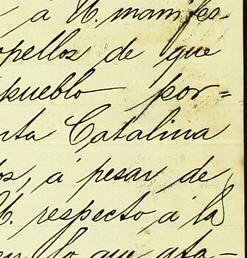 á U. manifes-
opellos de que
pueblo por-
nta Catalina
os, á pesar de
U. respecto á la
en lo que ata-